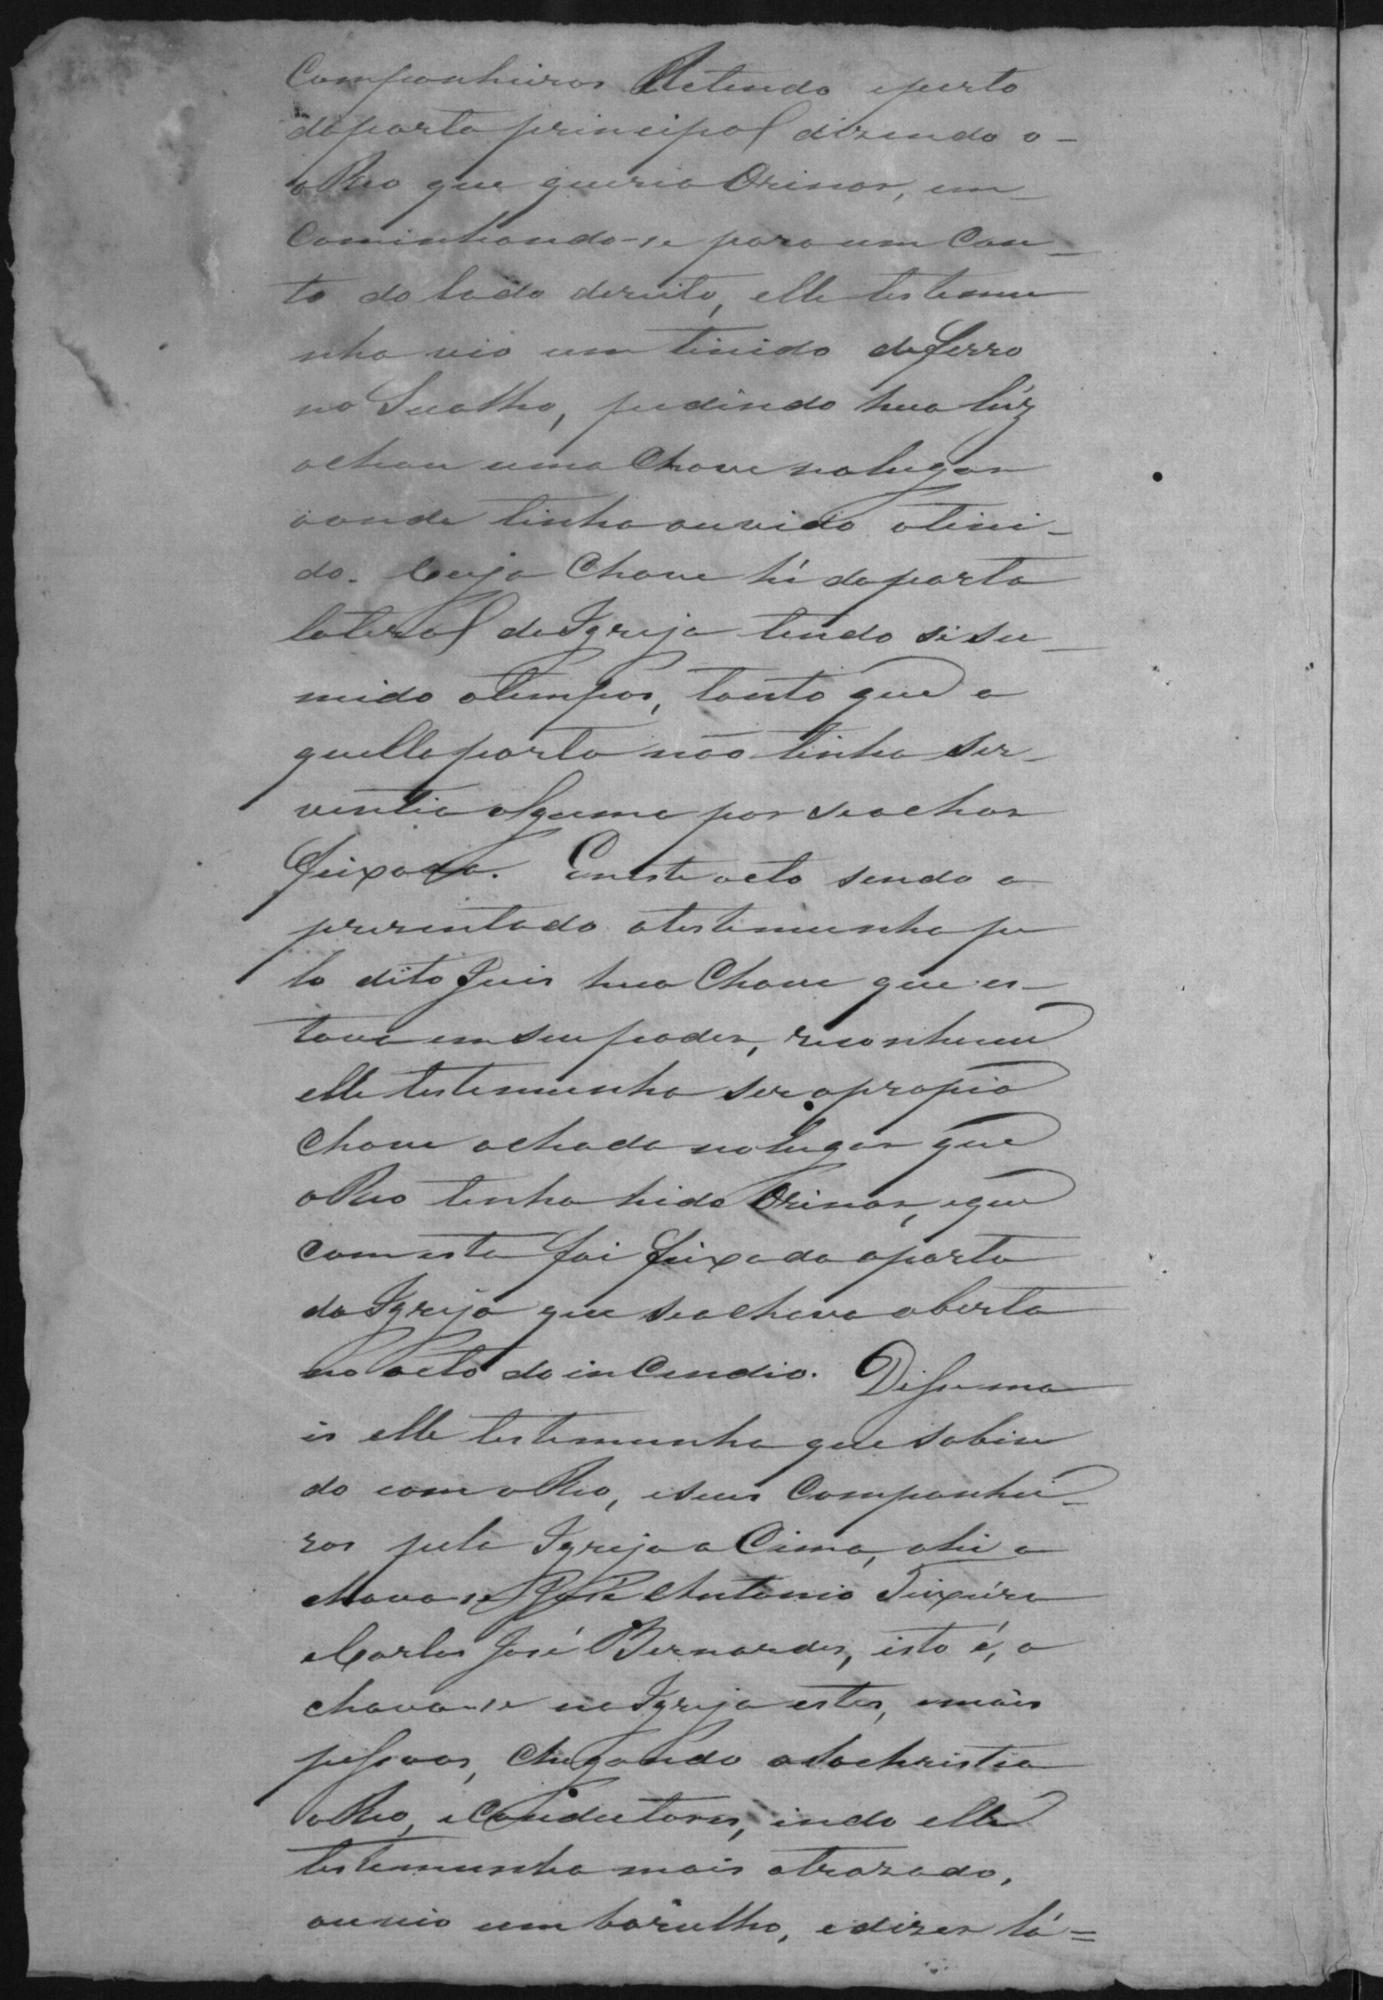 Companheiros Metendo eperto
daporta principal dizendo o-
oReo que queria Orinar, en-
Caminhando-se para um Can-
to do lado direito, elle testemu
nha vio um tinido deferro
no Sualho, pedindo hua lúz
achou uma Chave nolugar
aonde tinha ouvido otini-
do. Cuja Chave hé daporta
lateral daIgreja tendo sisu-
mido atempos, tanto que a
quella porta não tinha ser-
ventia alguma por seachar
feixada. Eneste acto sendo a
prezentado atestemunha pe
lo dito Juis hua Chave que es-
tava em seu poder, reconheceu
elle testemunha ser apropia
Chave achada nolugar que
oReo tinha hido Orinar, eque
com esta foi feixada aporta
da Igreja que seachava aberta
no acto do inCendio. Disse ma
is elle testemunha que sabin
do com oReo, eseus Companhei-
ros pela Igreja a Cima, ahi a
chava-se José Antonio Teixeira
eCarlos José Bernardes, isto é, a
chava-se na Igreja estes, emais
pessoas, Chegando aSachristia
oReo, eConductores, indo elle
testemunha mais atrazado,
ouvio um barulho, edizer lá=